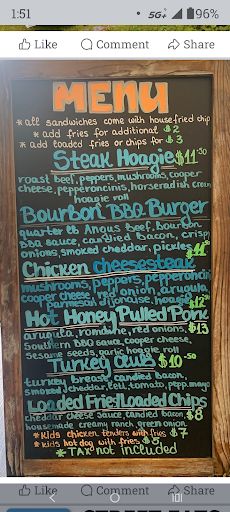 1:51
5G
96%
Like Comment Share
MENU
* all sandwiches come with house fried chip
* add fries for additional $2
* add loaded fries or chips for $3
Steak Hoagie $11.50
roast beef, peppers, mushrooms, cooper
cheese, pepperoncinis, horseradish cream
hoagie roll
Bourbon BBQ Burger
quarter lb Angus Beef, Bourbon
BBQ sauce, candied Bacon, crisp
onions, smoked cheddar, pickles
Chicken cheesesteak
mushrooms, peppers, pepperoncini
cooper cheese, red onion, arugula,
parmesan mayonaise, hoagie $12
Hot Honey Pulled Pork
arugula, romaine, red onions, $13
Southern BBQ sauce, cooper cheese,
sesame seeds, garlic hoagie roll
Turkey Club $10.50
turkey breast, candied Bacon,
smoked cheddar, lett, tomato, pepp. mayo
Loaded Fries/Loaded Chips
cheddar cheese sauce, candied bacon $8
housemade creamy ranch, green onion
* Kids chicken tenders with fries $7
* kids hot dog with fries $5
* TAX not included
Like Comment Share
STREET EATS